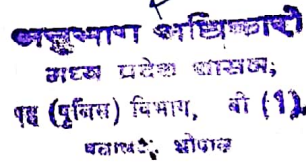 अनुभाग अधिकारी
मध्य प्रदेश शासन,
गृह (पुलिस) विभाग, बी (1)
भोपाल